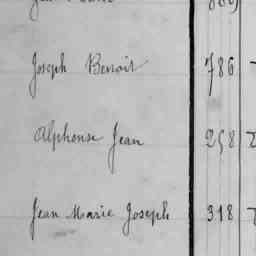 Joseph Benoit 786
Alphonse Jean 258
Jean Marie Joseph 318